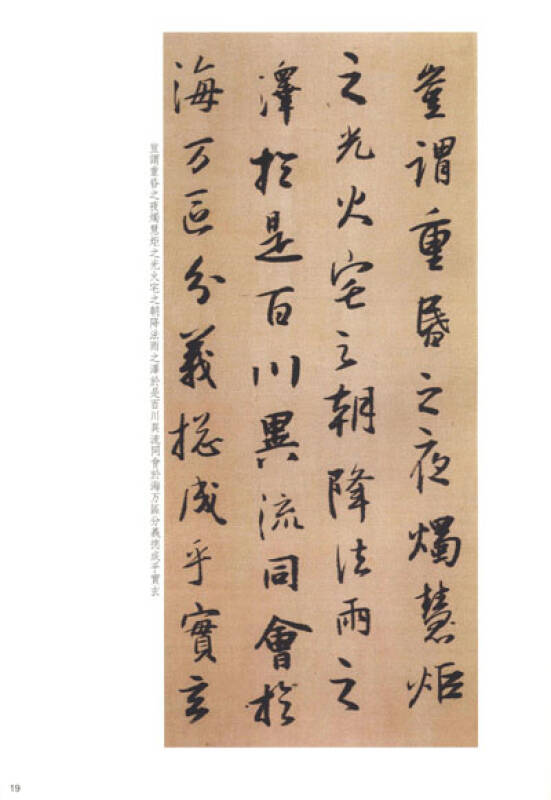 豈謂重昏之夜燭慧炬
之光火宅之朝降法雨之
澤於是百川異流同會於
海万區分義揔成乎實玄
豈謂重昏之夜燭慧炬之光火宅之朝降法雨之澤於是百川異流同會於海万區分義揔成乎實玄
19